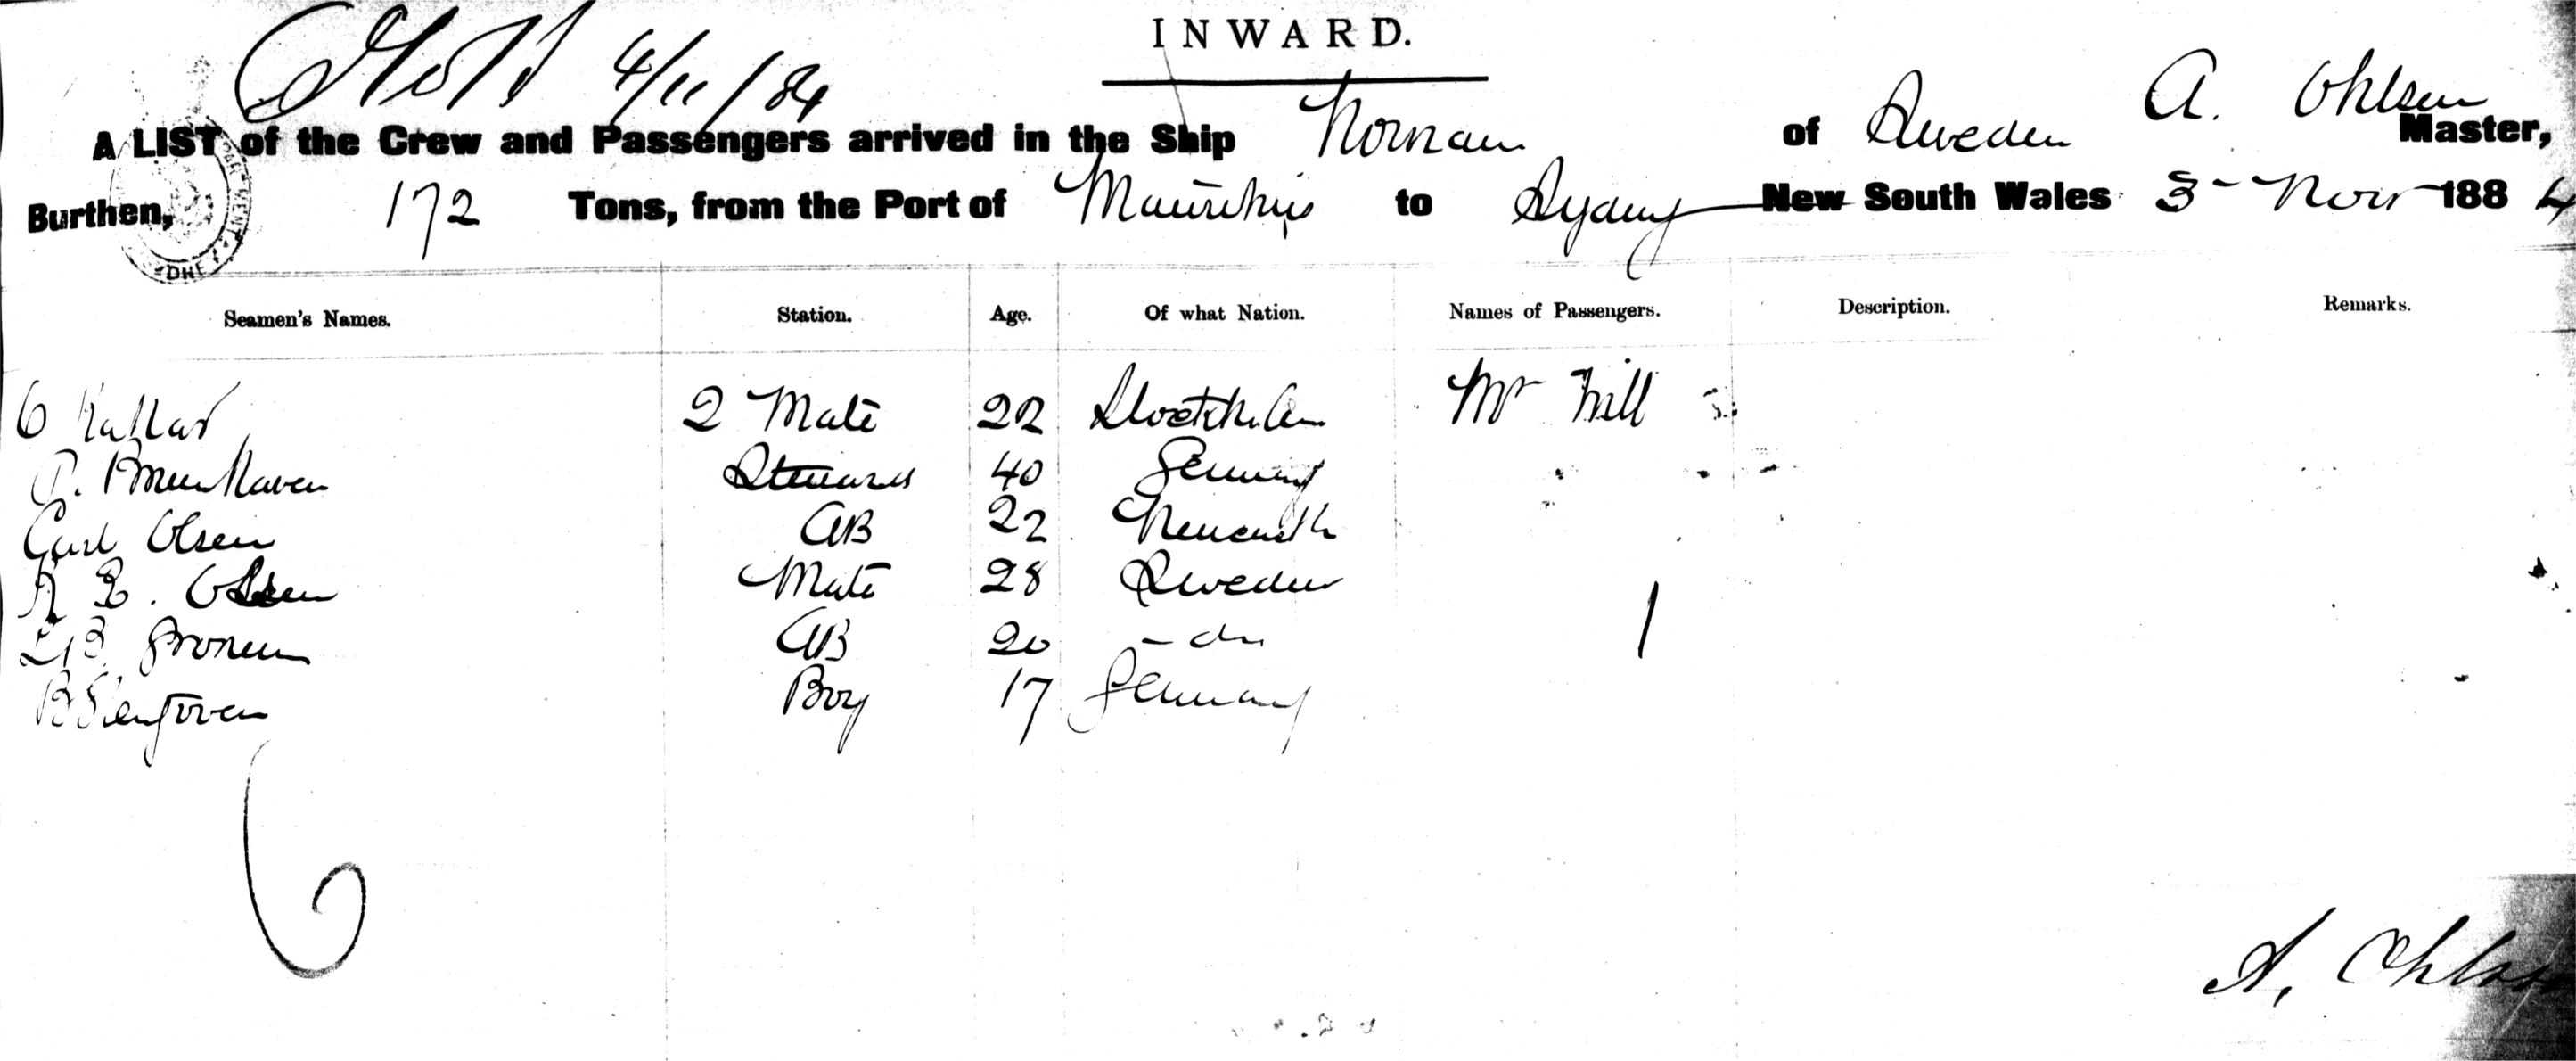 INWARD.
4/11/84
A. Ohlsen
A LIST of the Crew and Passengers arrived in the Ship Nornan of Sweden Master,
Burthen, 172 Tons, from the Port of Mauritius to Sydney New South Wales 3 Novr 1884
Seamen's Names. Station. Age. Of what Nation. Names of Passengers. Description. Remarks.
2 Mate 22 Stockholm Mr Hill
Steward 40 Germany
Carl Olsen AB 22 Newcastle
Olsen Mate 28 Sweden
AB 20 - do
B Boy 17 Germany
1
6
A. Ohlsen